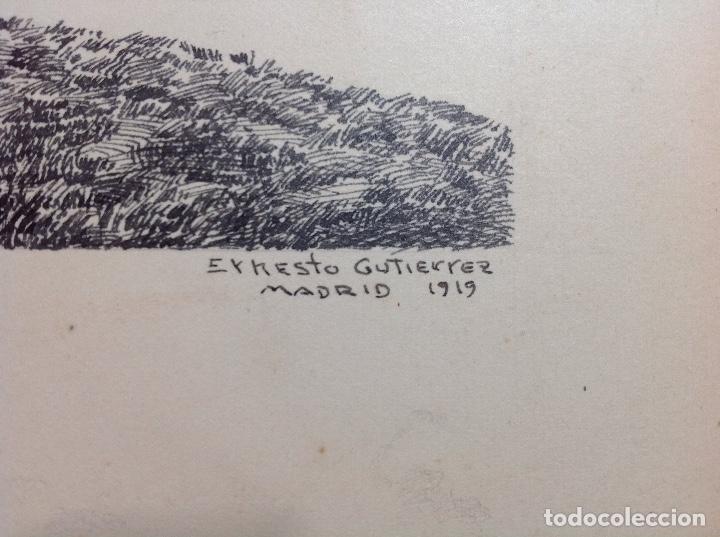 Ernesto Gutierrez
MADRID 1919
todocoleccion